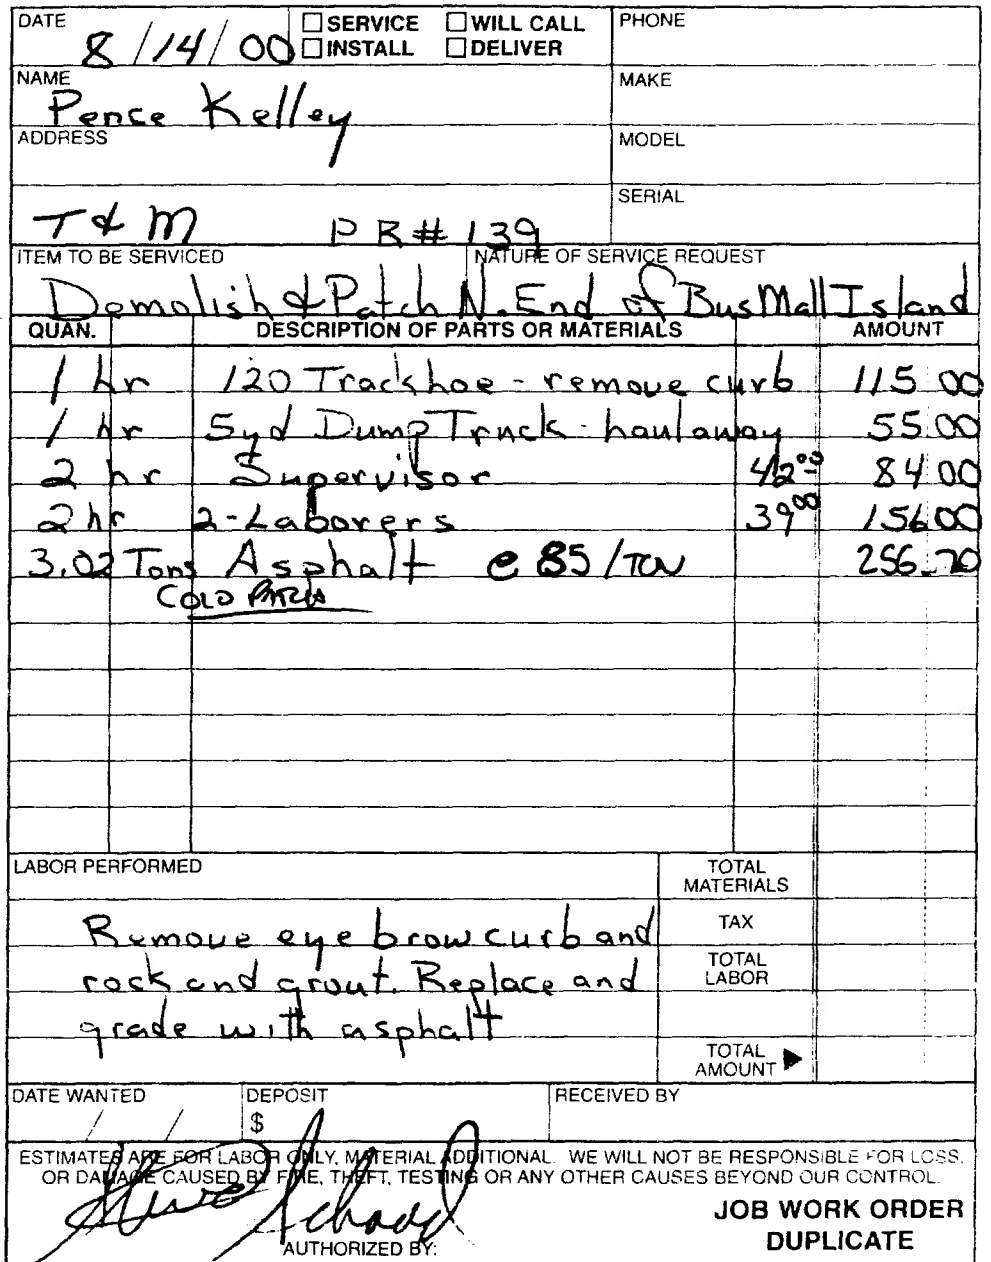 DATE 8/14/00 ☐ SERVICE ☐ WILL CALL PHONE
☐ INSTALL ☐ DELIVER
NAME Pence Kelley MAKE
ADDRESS MODEL
T & M PR# 139 SERIAL
ITEM TO BE SERVICED NATURE OF SERVICE REQUEST
Demolish & Patch N. End of Bus Mall Island
QUAN. DESCRIPTION OF PARTS OR MATERIALS AMOUNT
1 hr 120 Trackhoe - remove curb 115 00
1 hr 5yd Dump Truck - haul away 55 00
2 hr Supervisor 42 00 84 00
2 hr 2-Laborers 39 00 156 00
3.02 Tons Asphalt @ 85/TON 256.70
COLD PATCH
LABOR PERFORMED TOTAL MATERIALS
Remove eye brow curb and TAX
rock and grout. Replace and TOTAL LABOR
grade with asphalt
TOTAL AMOUNT ▶
DATE WANTED / / DEPOSIT $ RECEIVED BY
ESTIMATES ARE FOR LABOR ONLY, MATERIAL ADDITIONAL. WE WILL NOT BE RESPONSIBLE FOR LOSS,
OR DAMAGE CAUSED BY FIRE, THEFT, TESTING OR ANY OTHER CAUSES BEYOND OUR CONTROL.
JOB WORK ORDER
AUTHORIZED BY: DUPLICATE